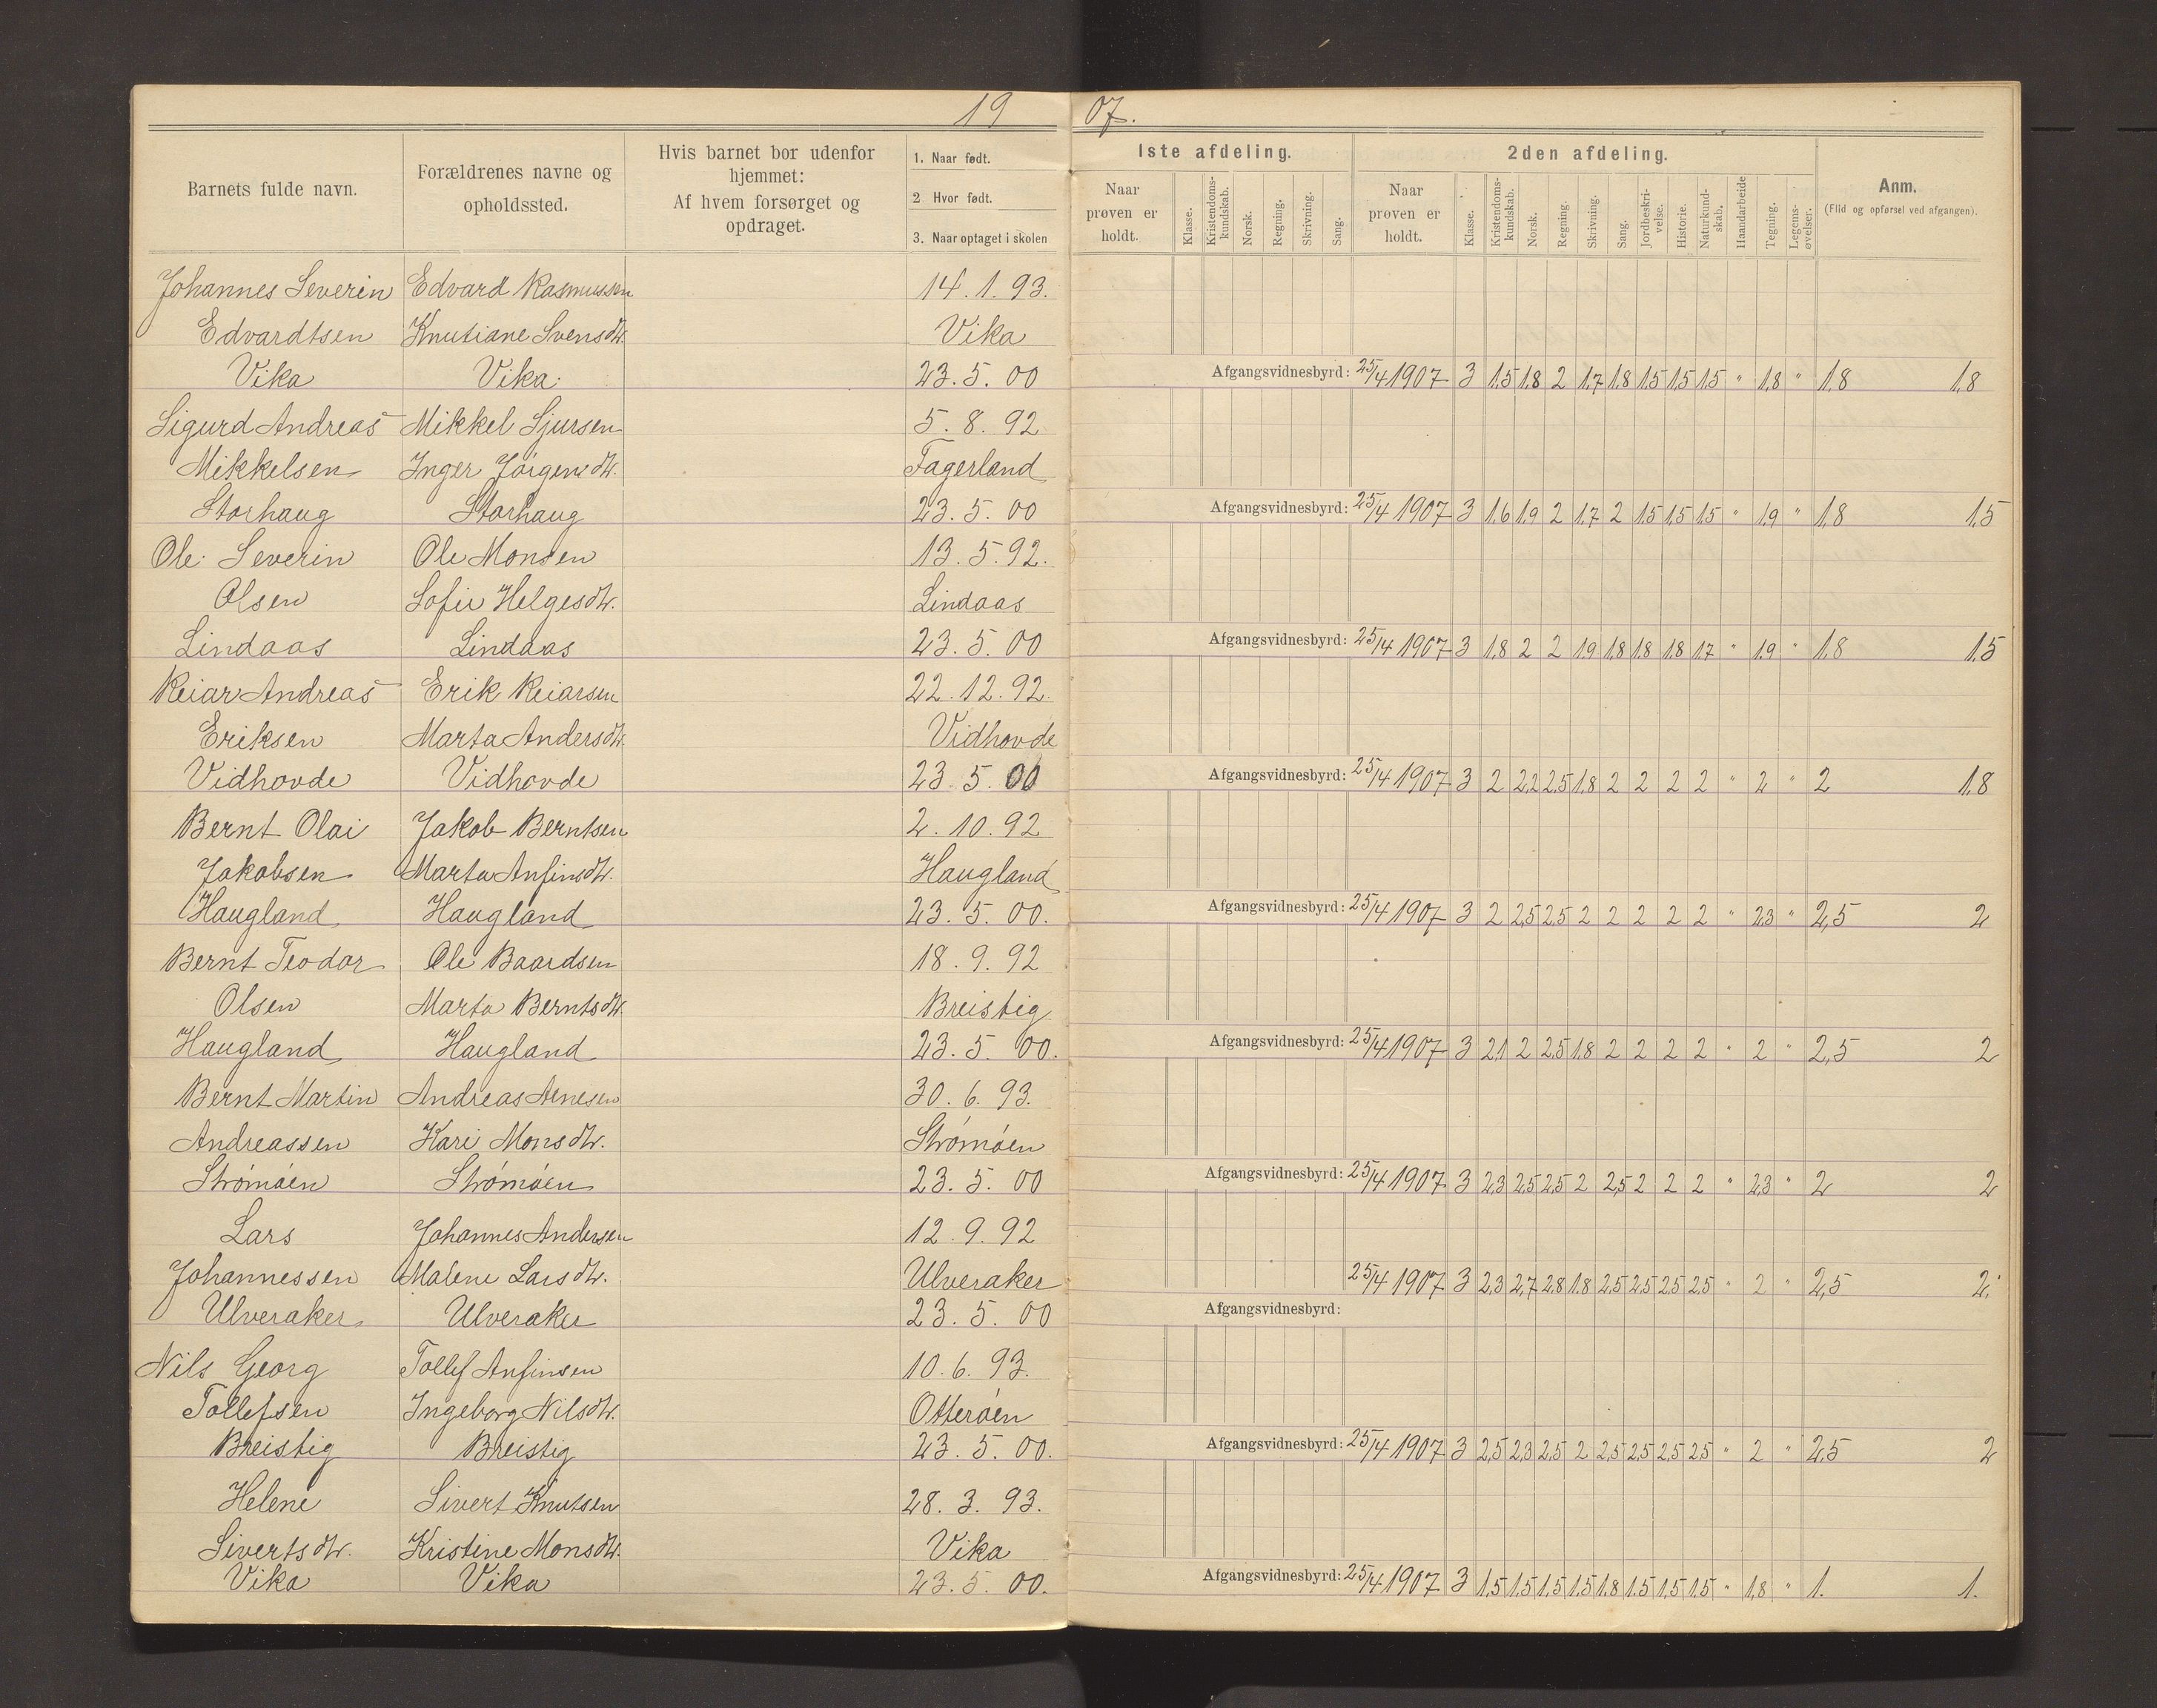 19 07.
Barnets fulde navn.
Forældrenes navne og opholdssted.
Hvis barnet bor udenfor hjemmet: Af hvem forsørget og opdraget.
1. Naar født.
2 Hvor født.
3. Naar optaget i skolen
Iste afdeling.
Naar prøven er holdt.
Klasse.
Kristendoms-kundskab.
Norsk.
Regning.
Skrivning.
Sang.
2den afdeling.
Naar prøven er holdt.
Klasse.
Kristendoms-kundskab.
Norsk.
Regning.
Skrivning.
Sang.
Jordbeskri-velse.
Historie.
Naturkund-skab.
Haandarbeide
Tegning.
Legems-øvelser.
Anm.
(Flid og opførsel ved afgangen).
Johannes Severin Edvard Rasmussen 14.1.93.
Edvardtsen Knutiane Svensdtr. Vika
Vika Vika 23.5.00 Afgangsvidnesbyrd: 25/4 1907 3 1,5 1,8 2 1,7 1,8 1,5 1,5 1,5 " 1,8 " 1,8 1,8
Sigurd Andreas Mikkel Sjursen 5.8.92
Mikkelsen Inger Jörgensdtr. Fagerland
Storhaug Storhaug 23.5.00 Afgangsvidnesbyrd: 25/4 1907 3 1,6 1,9 2 1,7 2 1,5 1,5 1,5 " 1,9 " 1,8 1,5
Ole Severin Ole Monsen 13.5.92.
Olsen Sofie Helgesdtr. Lindaas
Lindaas Lindaas 23.5.00 Afgangsvidnesbyrd: 25/4 1907 3 1,8 2 2 1,9 1,8 1,8 1,8 1,7 " 1,9 " 1,8 1,5
Reiar Andreas Erik Reiarsen 22.12.92.
Eriksen Marta Andersdtr. Vidhovde
Vidhovde Vidhovde 23.5.00 Afgangsvidnesbyrd: 25/4 1907 3 2 2,2 2,5 1,8 2 2 2 2 " 2 " 2 1,8
Bernt Olai Jakob Berntsen 2.10.92
Jakobsen Marta Anfinsdtr. Haugland
Haugland Haugland 23.5.00. Afgangsvidnesbyrd: 25/4 1907 3 2 2,5 2,5 2 2 2 2 2 " 2,3 " 2,5 2
Bernt Teodor Ole Baardsen 18.9.92
Olsen Marta Berntsdtr. Breistig
Haugland Haugland 23.5.00. Afgangsvidnesbyrd: 25/4 1907 3 2,1 2 2,5 1,8 2 2 2 2 " 2 " 2,5 2
Bernt Martin Andreas Arnesen 30.6.93.
Andreassen Kari Monsdtr. Strömöen
Strömöen Strömöen 23.5.00 Afgangsvidnesbyrd: 25/4 1907 3 2,3 2,5 2,5 2 2,5 2 2 2 " 2,3 " 2 2
Lars Johannes Andersen 12.9.92
Johannessen Malene Larsdtr. Ulveraker 25/4 1907 3 2,3 2,7 2,8 1,8 2,5 2,5 2,5 2,5 " 2 " 2,5 2.
Ulveraker Ulveraker 23.5.00 Afgangsvidnesbyrd:
Nils Georg Tollef Anfinsen 10.6.93.
Tollefsen Ingeborg Nilsdtr. Otteröen
Breistig Breistig 23.5.00. Afgangsvidnesbyrd: 25/4 1907 3 2,5 2,3 2,5 2 2,5 2,5 2,5 2,5 " 2 " 2,5 2
Helene Sivert Knutsen 28.3.93.
Sivertsdtr. Kristine Monsdtr. Vika
Vika Vika 23.5.00. Afgangsvidnesbyrd: 25/4 1907 3 1,5 1,5 1,5 1,5 1,8 1,5 1,5 1,5 " 1,8 " 1. 1.